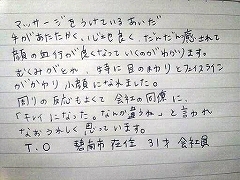 マッサージをうけているあいだ
手があたたかく、心も良く、だんだん癒されて
顔の血行が良くなっていくのがわかります。
むくみがとれ、特に目のまわりとフェイスライン
がかわり小顔になれました。
周りの反応もよくて会社の同僚に、
「キレイになった。なんか違うね」と言われ
なおうれしく思っています。
T.O 碧南市在住 31才 会社員